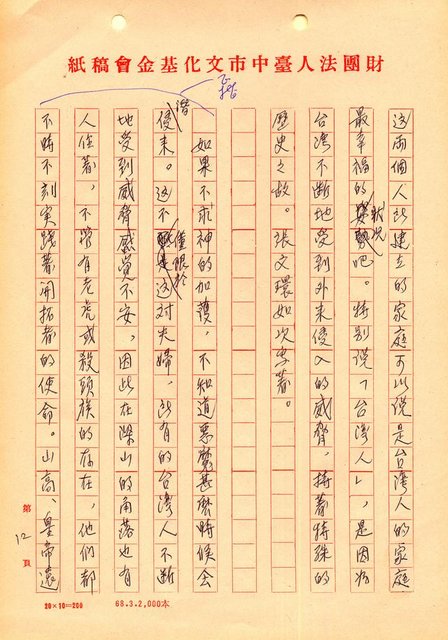 財團法人臺中市文化基金會稿紙
正楷
這兩個人所建立的家庭可以說是台灣人的家庭
最幸福的狀況吧。特別說「台灣人」，是因為
台灣不斷地受到外來侵入的威脅，持著特殊的
歷史之故。張文環如次寫著。
如果不求神的加護，不知道惡魔甚麼時候會
潛侵來。這不僅限於這對夫婦，所有的台灣人不斷
地受到威脅感覺不安，因此在深山的角落也有
人住著，不管有老虎或殺頭族的存在，他們都
不時不刻實踐著開拓者的使命。山高、皇帝遠
第12頁
20×10=200
68.3.2,000本